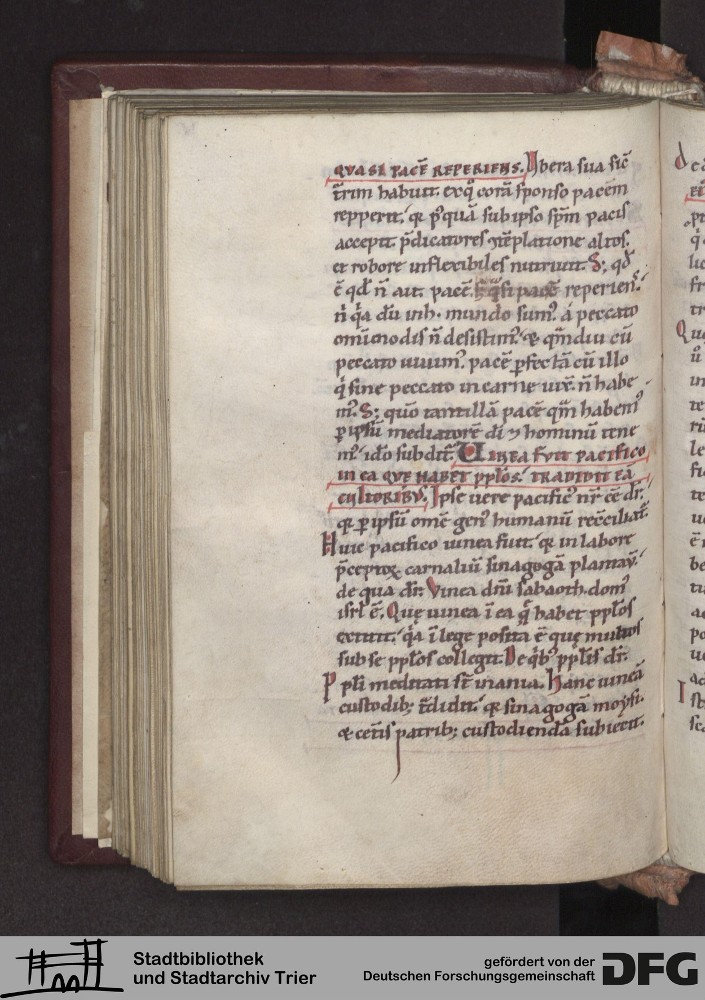 QVASI PACĒ REPERIENS. Vbera sua sic̄
t̄rim habuit. ex q̊ corā sponso pacem
repperit. qꝛ p̾quā sub ipso sp̄m pacis
accepit. p̄dicatores
et robore inflexibiles nutriuit. S; qđ
ē qđ n̄ ait. pacē. quasi pacē reperien̾.
n̄ q̇a dū inh. mundo sum̾. a peccato
omīmodis n̄ desistim̾. & qͣmdiu cū
peccato uiuim̾. pacē ꝑfectā cū illo
q̇ sine peccato in carne uix̄. n̄ habe
m̾. S; quō tantillā pacē qͣm habem̾
ꝑ ipsū mediatorē dī ⁊ hominū tene
m̾. idō subdit̄. VINEA FVIT PACIFICO
IN EA QVE HABET PPLOS. TRADIDIT EĀ
CVLTORIBVS. Ipse uere pacific̾ nr̄ eē dr̄.
qꝛ ꝑ ipsū omē gen̾ humanū
Huic pacifico uinea fuit. qꝛ in labore
p̄ceptoꝝ carnaliū sinagogā plantau̅.
de qua dr̄. Vinea dn̄i sabaoth. dom̾
isrl̄ ē. Que uinea ī ea q̄ habet pplōs
extitit. q̇a ī lege posita ē que multos
sub se pplōs collegit. De q̇b; pplīs dr̄.
Ppli meditati st̄ inania. Hanc uineā
custodib; t̄didit. qꝛ sinagogā moysi.
& cet̄is patrib; custodiendā subiecit.
Stadtbibliothek
und Stadtarchiv Trier
gefördert von der
Deutschen Forschungsgemeinschaft
DFG